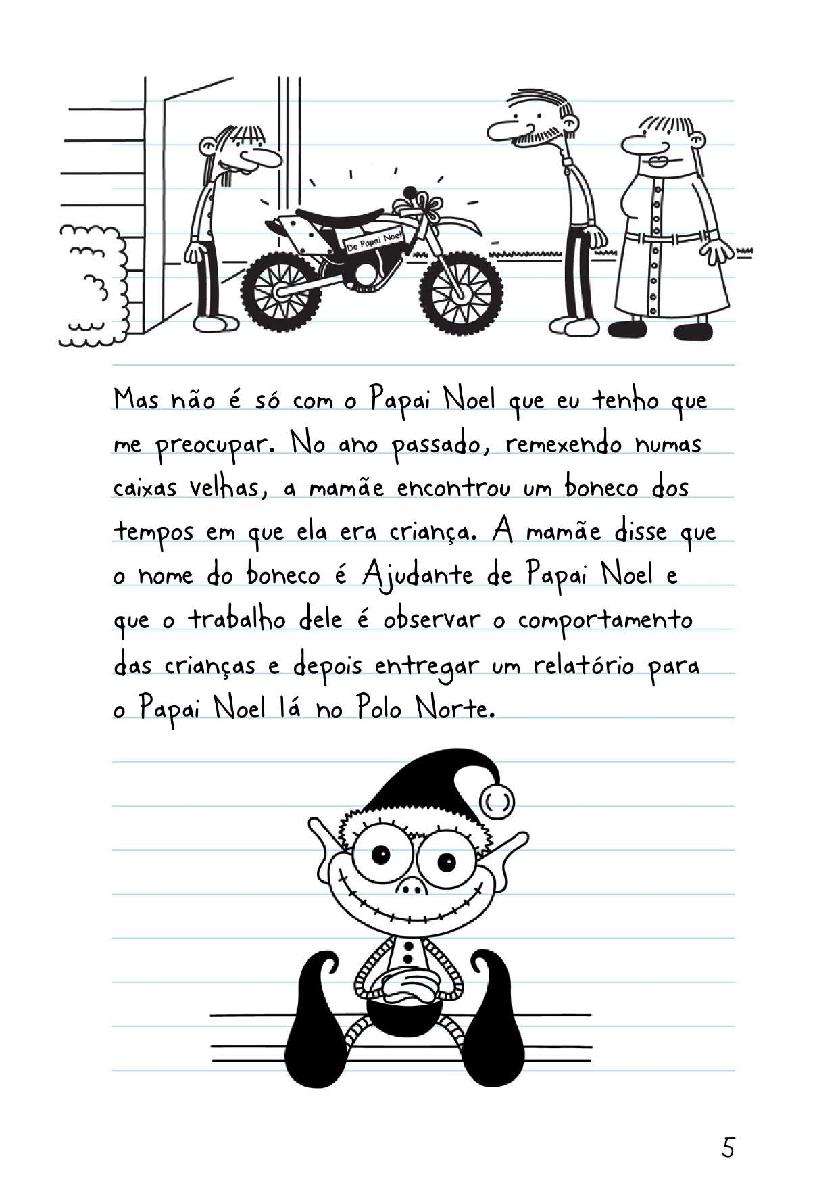 De Papai Noel
Mas não é só com o Papai Noel que eu tenho que
me preocupar. No ano passado, remexendo numas
caixas velhas, a mamãe encontrou um boneco dos
tempos em que ela era criança. A mamãe disse que
o nome do boneco é Ajudante de Papai Noel e
que o trabalho dele é observar o comportamento
das crianças e depois entregar um relatório para
o Papai Noel lá no Polo Norte.
5